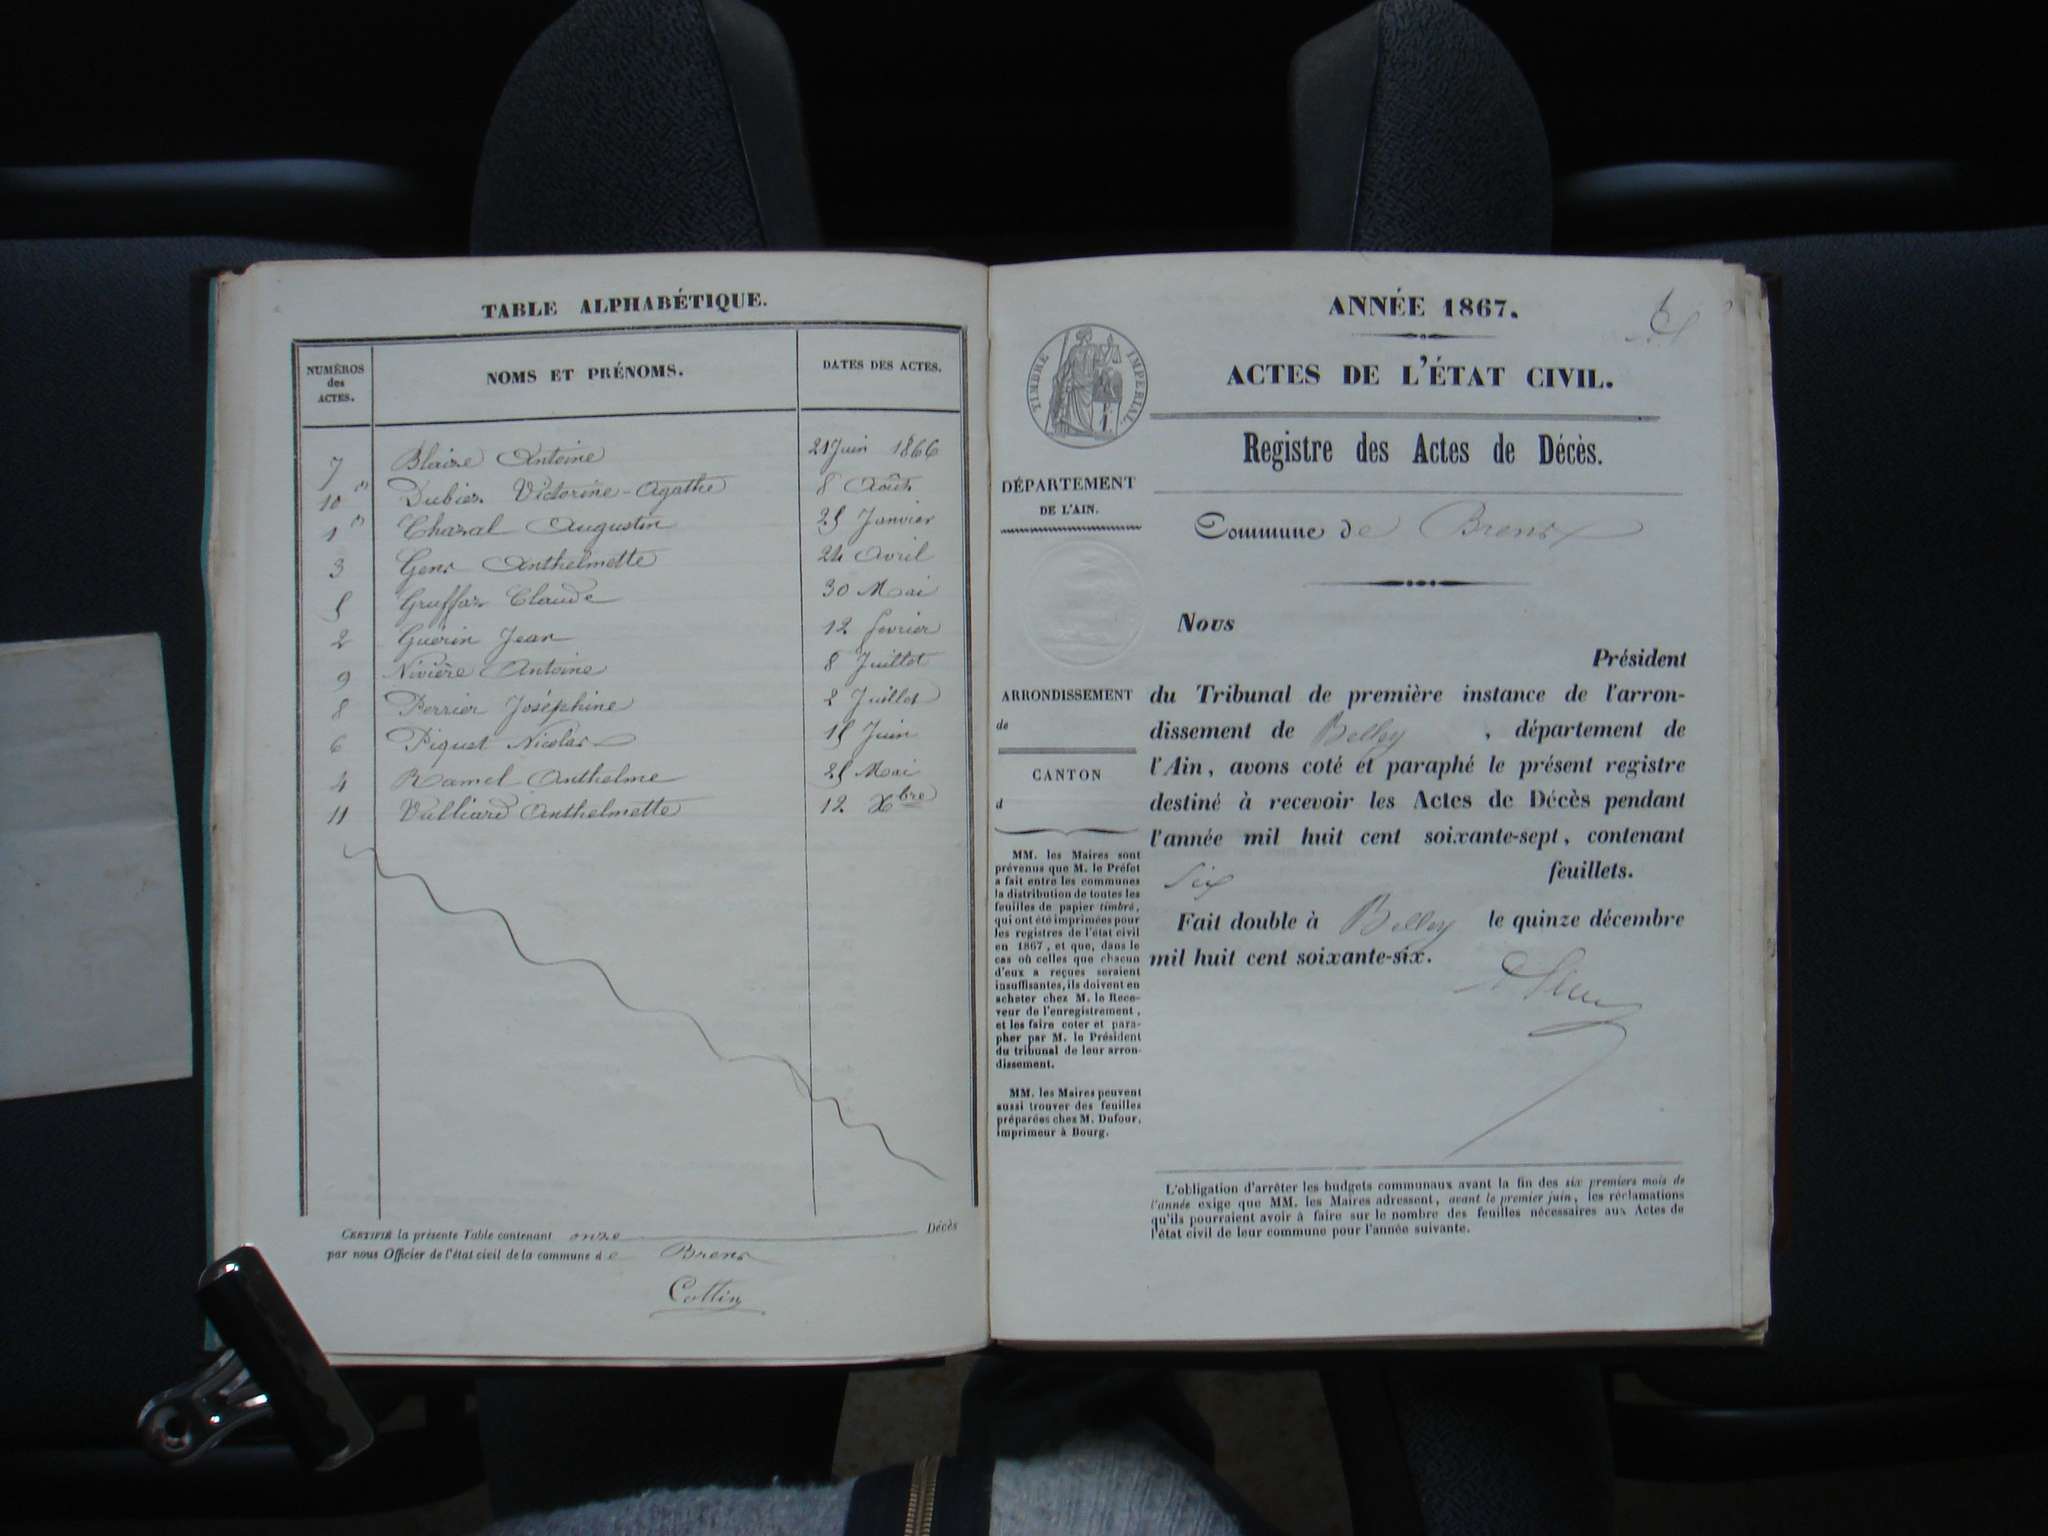 TABLE ALPHABÉTIQUE.
NUMÉROS des ACTES.
NOMS ET PRÉNOMS.
DATES DES ACTES.
7 Blaise Antoine 21 Juin 1866
10 Dubier Victorine-Agathe 8 Août
1 Chazal Augustin 25 Janvier
3 Gens Anthelmette 24 Avril
5 Gruffaz Claude 30 Mai
2 Guérin Jean 12 février
9 Nivière Antoine 8 Juillet
8 Perrier Joséphine 2 Juillet
6 Piquet Nicolas 15 Juin
4 Ramel Anthelme 25 Mai
11 Vulliard Anthelmette 12 Xbre
CERTIFIÉ la présente Table contenant onze Décès
par nous Officier de l'état civil de la commune de Brens
Collin
ANNÉE 1867.
TIMBRE IMPÉRIAL.
ACTES DE L'ÉTAT CIVIL.
Registre des Actes de Décès.
DÉPARTEMENT
DE L'AIN.
Commune de Brens
ARRONDISSEMENT
de
CANTON
d
MM. les Maires sont
prévenus que M. le Préfet
a fait entre les communes
la distribution de toutes les
feuilles de papier timbré,
qui ont été imprimées pour
les registres de l'état civil
en 1867, et que, dans le
cas où celles que chacun
d'eux a reçues seraient
insuffisantes, ils doivent en
acheter chez M. le Rece-
veur de l'enregistrement,
et les faire coter et para-
pher par M. le Président
du tribunal de leur arron-
dissement.
MM. les Maires peuvent
aussi trouver des feuilles
préparées chez M. Dufour,
imprimeur à Bourg.
Nous
Président
du Tribunal de première instance de l'arron-
dissement de Belley, département de
l'Ain, avons coté et paraphé le présent registre
destiné à recevoir les Actes de Décès pendant
l'année mil huit cent soixante-sept, contenant
six feuillets.
Fait double à Belley le quinze décembre
mil huit cent soixante-six.
L'obligation d'arrêter les budgets communaux avant la fin des six premiers mois de
l'année exige que MM. les Maires adressent, avant le premier juin, les réclamations
qu'ils pourraient avoir à faire sur le nombre des feuilles nécessaires aux Actes de
l'état civil de leur commune pour l'année suivante.